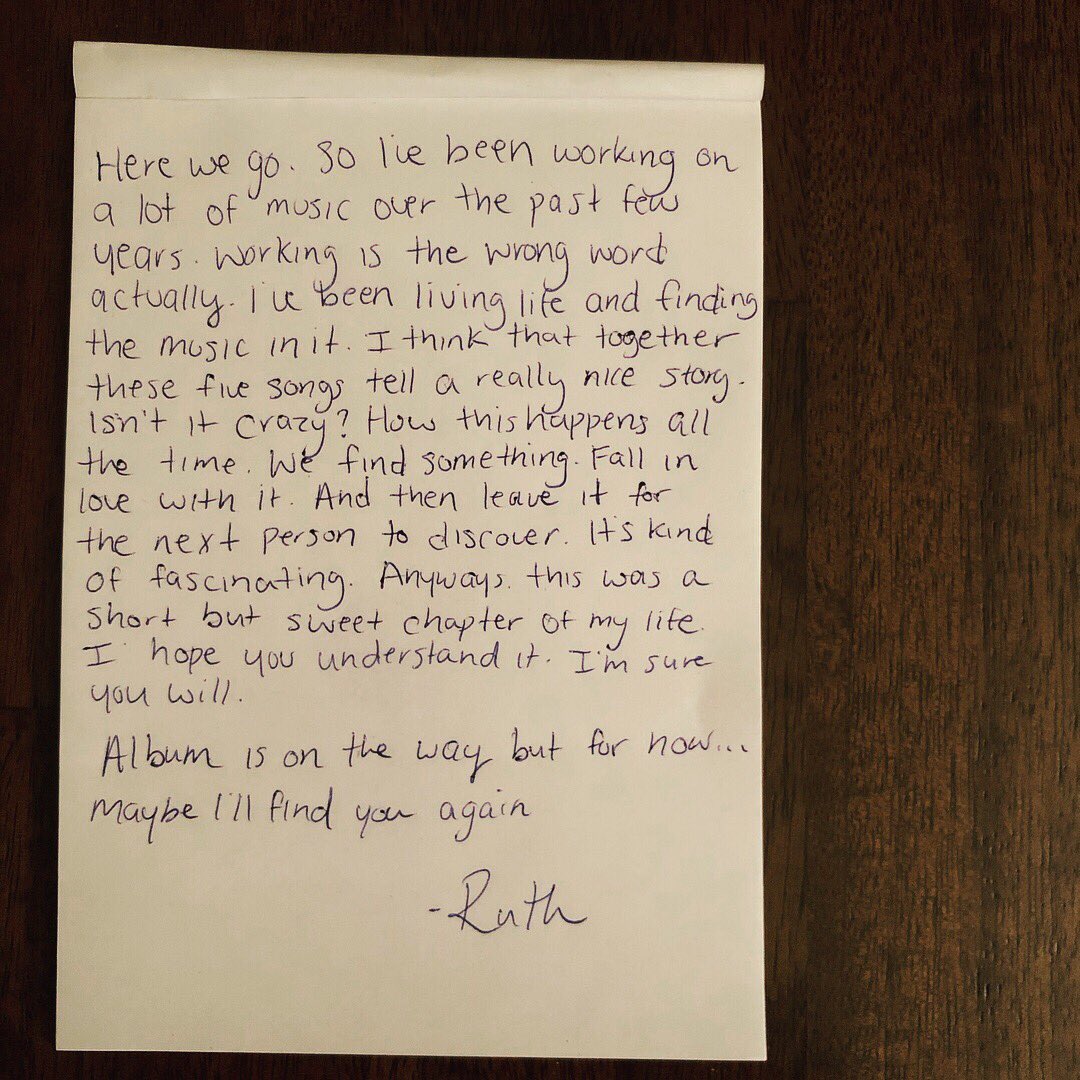 Here we go. So I've been working on
a lot of music over the past few
years. Working is the wrong word
actually. I've been living life and finding
the music in it. I think that together
these five songs tell a really nice story.
Isn't it crazy? How this happens all
the time. We find something. Fall in
love with it. And then leave it for
the next person to discover. It's kind
of fascinating. Anyways. this was a
short but sweet chapter of my life.
I hope you understand it. I'm sure
you will.
Album is on the way but for now...
maybe I'll find you again
-Ruth